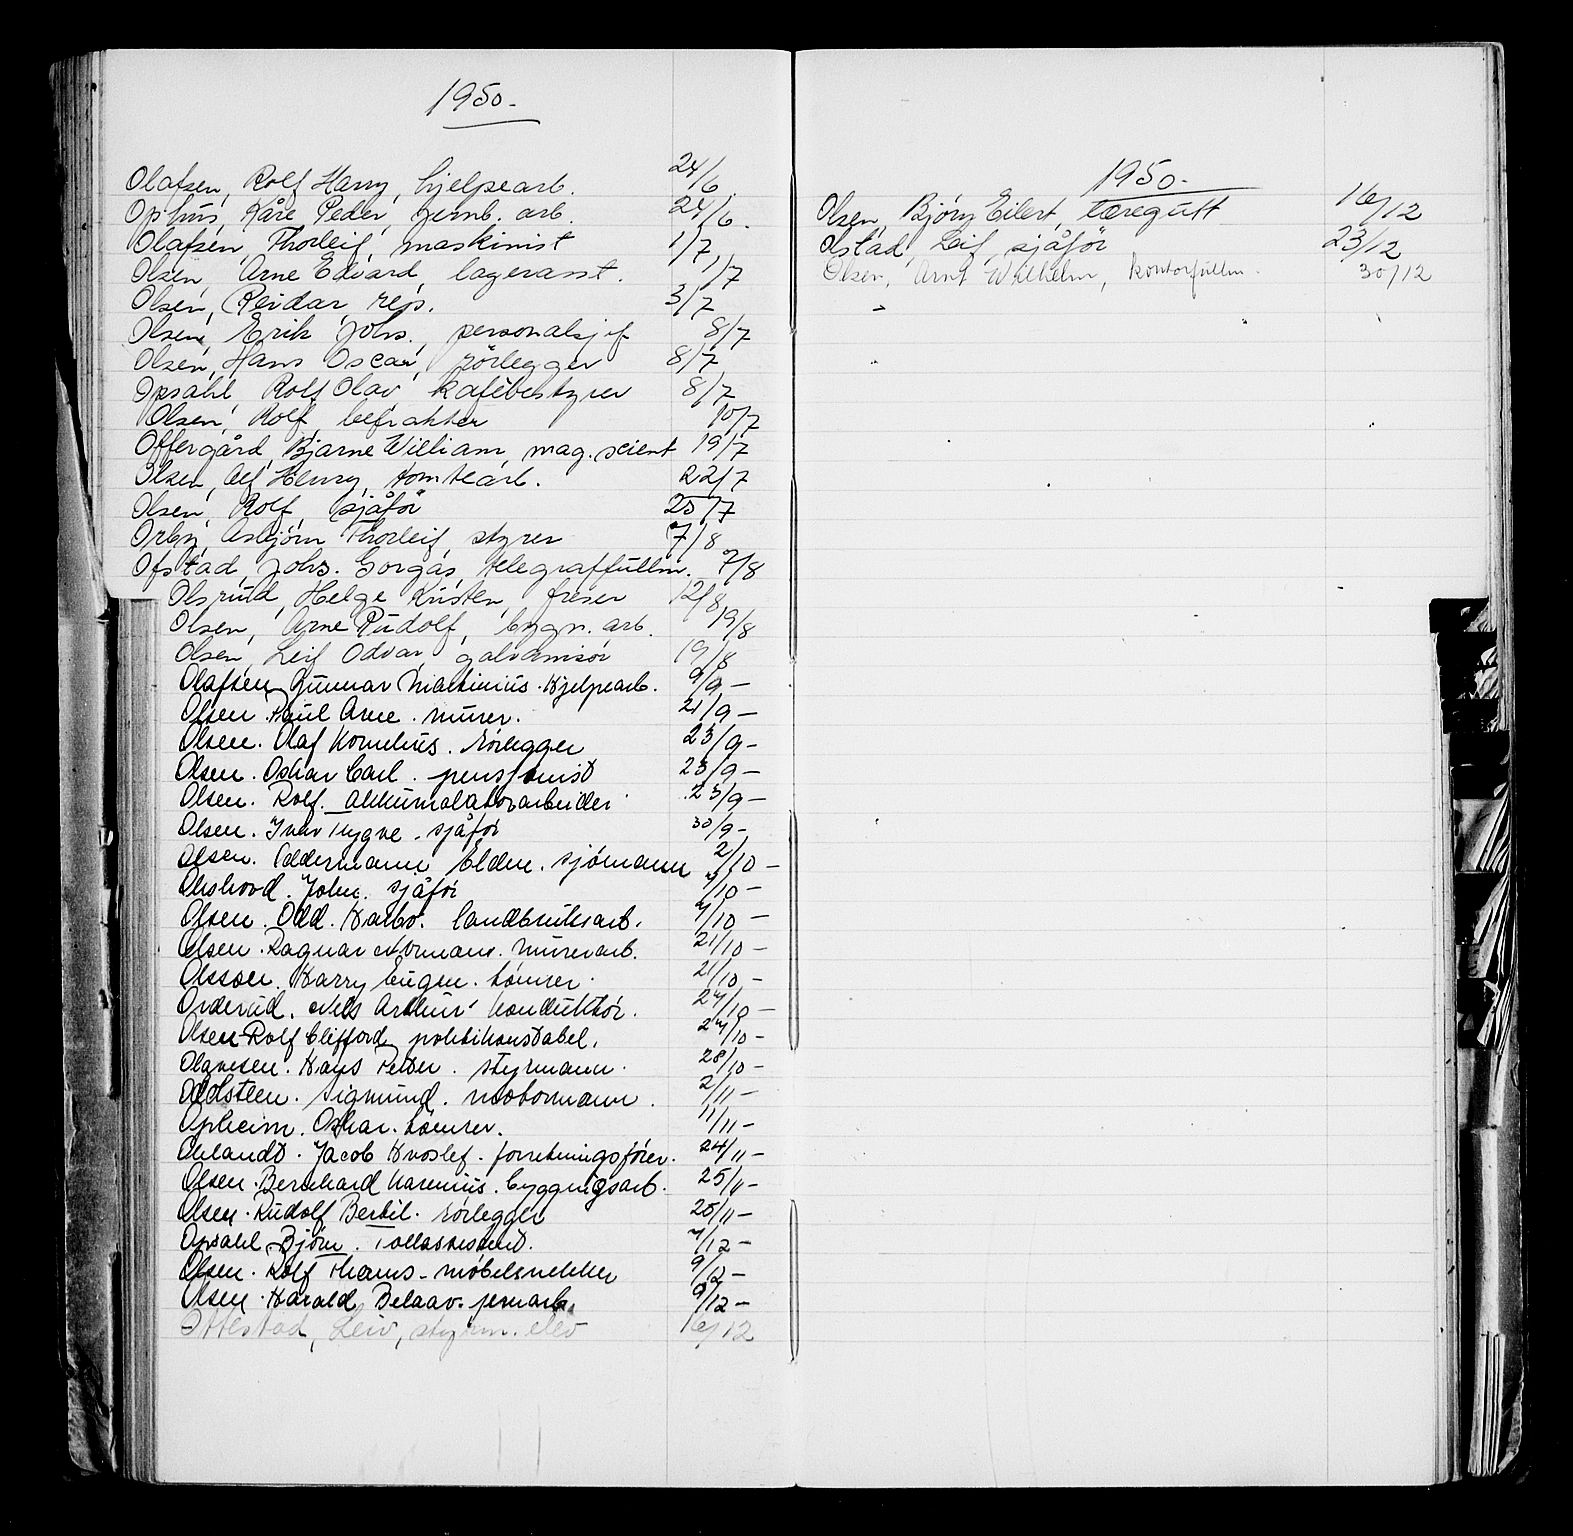 1950.
Olafsen, Rolf Harry, hjelpearb. 24/6.
Ophus, Kåre Peder, jernb. arb. 24/6.
Olafsen, Thorleif, maskinist 1/7
Olsen, Arne Edvard, lagerasst. 1/7
Olsen, Reidar, reps. 3/7
Olsen, Erik Johs., personalsjef 8/7
Olsen, Hans Oscar, rörlegger 8/7
Opsahl, Rolf Olav kafébestyrer 8/7
Olsen, Rolf, befrakter 10/7
Offergård, Bjarne William, mag. scient 19/7
Olsen, Alf Henry, tomtearb. 22/7
Olsen, Rolf, sjåför 25/7
Orby, Asbjörn Thorleif, styrer 7/8
Ofstad, Johs. Gorgas, telegraffullm. 7/8
Olsrud, Helge Kristen, freser 12/8
Olsen, Arne Rudolf, bygn. arb. 19/8
Olsen, Leif Odvar, galvanisör 19/8
Olafsen, Gunnar Martinius. Hjelpearb. 9/9 –
Olsen. Paul Arne. murer. 21/9 –
Olsen. Olaf Kornelius. rörlegger 23/9 –
Olsen. Oskar Carl. pensjonist 23/9 –
Olsen. Rolf. Akkumulatorarbeider 23/9 –
Olsen. Ivar Trygve. sjåför 30/9 –
Olsen. Oddermann Elden. sjömann 2/10 –
John. sjåför 7/10 –
Olsen. Odd. Karbo. landbruksarb. 7/10 –
Olsen. Ragnar Normann. murerarb. 21/10 –
Olssen. Harry Eugen. tömrer. 21/10 –
Orderud. Nils Arthur. konduktör. 27/10 –
Olsen Rolf Clifford, politikonstabel. 27/10 –
Olavesen. Hans Petter. styrmann. 28/10 –
Oldsteen. Sigmund. motormann. 2/11 –
Opheim. Oskar. tömrer. 11/11 –
Ohlandt. Jacob Kroslef. forretningsförer. 24/11 –
Olsen. Bernhard Karenius. bygningsarb. 25/11 –
Olsen. Rudolf Bertil. rörlegger 25/11 –
Opsahl Björn. Tollassistent. 7/12 –
Olsen. Rolf Hans. möbelsnekker 9/12 –
Olsen. Harald Belaav. jernarb. 9/12 –
Ottestad, Leiv, styrm. elev 16/12
1950.
Olsen, Björn Eilert, læregutt 16/12
Olstad, Leif, sjåför 23/12
Olsen, Arnt Wilhelm, kontorfullm. 30/12